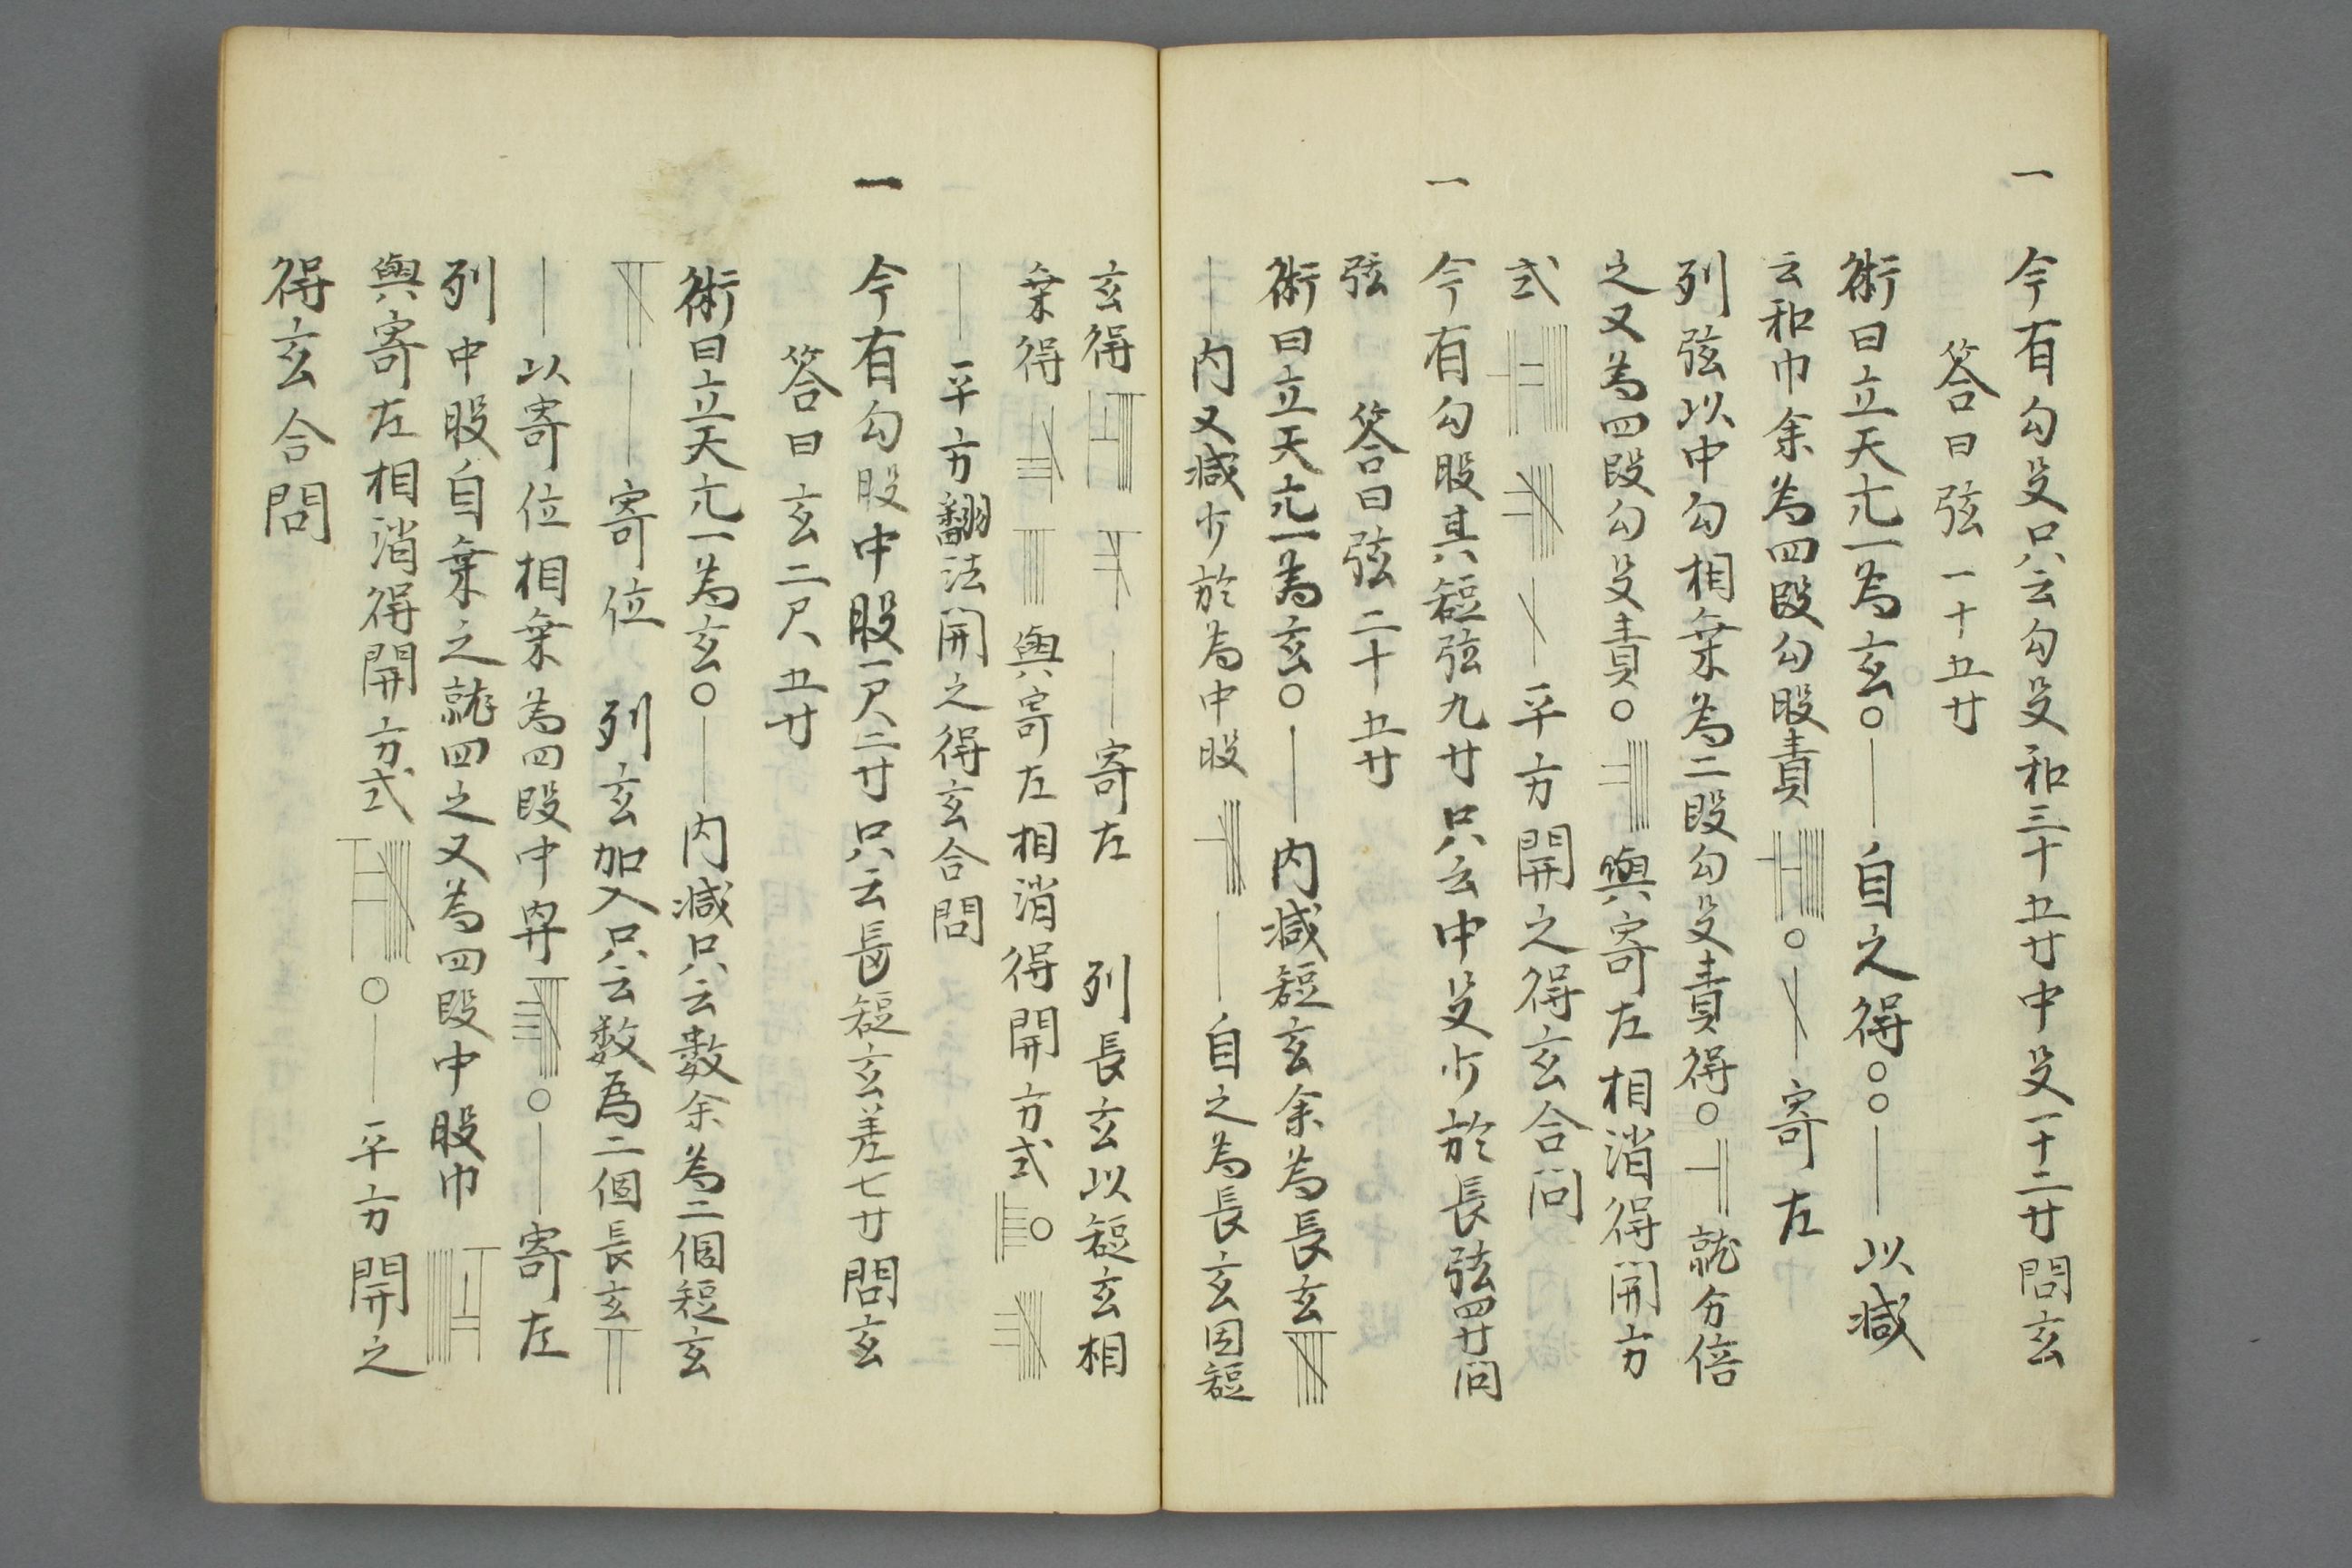 一 今有勾殳只云勾殳和三十五寸中殳一十二寸問玄
答曰弦一十五寸
術曰立天元一為玄〇｜自之得〇〇｜以減
云和巾余為四段勾股責 〇 寄左
列弦以中勾相乗為二段勾殳責得〇 就分倍
之又為四段勾殳責〇 與寄左相消得開方
式 平方開之得玄合問
一 今有勾股其短弦九寸只云中殳少於長弦四寸問
弦 答曰弦二十五寸
術曰立天元一為玄〇｜内減短玄余為長玄
｜内又減少於為中股 ｜自之為長玄因短
玄得 ｜寄左 列長玄以短玄相
乗得 與寄左相消得開方式
｜平方翻法開之得玄合問
一 今有勾股中股一尺二寸只云長短玄差七寸問玄
答曰玄二尺五寸
術曰立天元一為玄〇｜内減只云數余為二個短玄
｜寄位 列玄加入只云数為二個長玄
｜以寄位相乗為四段中 〇｜寄左
列中股自乗之就四之又為四段中股巾
與寄左相消得開方式 〇｜平方開之
得玄合問